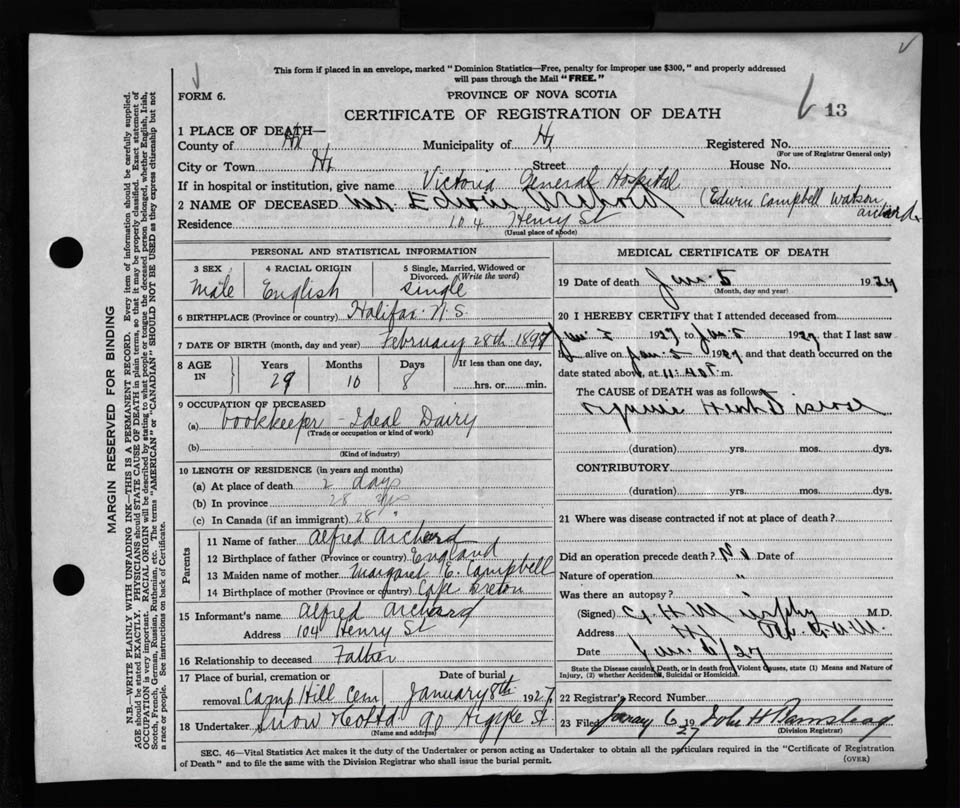 This form if placed in an envelope, marked "Dominion Statistics—Free, penalty for improper use $300," and properly addressed
will pass through the Mail "FREE."
FORM 6.
PROVINCE OF NOVA SCOTIA
CERTIFICATE OF REGISTRATION OF DEATH
13
1 PLACE OF DEATH—
County of Hx Municipality of Hx Registered No.
(For use of Registrar General only)
City or Town Hx Street House No.
If in hospital or institution, give name Victoria General Hospital
2 NAME OF DECEASED Mr Edwin Archard (Edwin Campbell Watson Archard)
Residence 104 Henry St
(Usual place of abode)
PERSONAL AND STATISTICAL INFORMATION
3 SEX 4 RACIAL ORIGIN 5 Single, Married, Widowed or
Divorced. (Write the word)
Male English Single
6 BIRTHPLACE (Province or country) Halifax N.S.
7 DATE OF BIRTH (month, day and year) February 28th 1897
8 AGE IN Years Months Days If less than one day,
29 10 8 hrs. or min.
9 OCCUPATION OF DECEASED
(a) bookkeeper - Ideal Dairy
(Trade or occupation or kind of work)
(b)
(Kind of industry)
10 LENGTH OF RESIDENCE (in years and months)
(a) At place of death 2 days
(b) In province 28 yrs
(c) In Canada (if an immigrant) 28 "
Parents
11 Name of father Alfred Archard
12 Birthplace of father (Province or country) England
13 Maiden name of mother Margaret E. Campbell
14 Birthplace of mother (Province or country) Cape Breton
15 Informant's name Alfred Archard
Address 104 Henry St
16 Relationship to deceased Father
17 Place of burial, cremation or Date of burial
removal Camp Hill Cem January 8th 1927
18 Undertaker Snow 90 Argyle St
(Name and address)
MEDICAL CERTIFICATE OF DEATH
19 Date of death Jan. 5 1927
(Month, day and year)
20 I HEREBY CERTIFY that I attended deceased from
Jan 1927 to Jan 5 1927 that I last saw
h alive on Jan 5 1927 and that death occurred on
date stated above, at 11.40 P. m.
The CAUSE of DEATH was as follows
Heart Disease
(duration) yrs. mos. dys.
CONTRIBUTORY
(duration) yrs. mos. dys.
21 Where was disease contracted if not at place of death?
Did an operation precede death? No Date of
Nature of operation "
Was there an autopsy?
(Signed) G H Murphy M.D.
Address Hx
Date Jan. 6/27
State the Disease causing Death, or in death from Violent Causes, state (1) Means and Nature of
Injury, (2) whether Accidental, Suicidal or Homicidal.
22 Registrar's Record Number
23 Filed January 6 1927 John H
(Division Registrar)
SEC. 46—Vital Statistics Act makes it the duty of the Undertaker or person acting as Undertaker to obtain all the particulars required in the "Certificate of Registration
of Death" and to file the same with the Division Registrar who shall issue the burial permit.
(OVER)
MARGIN RESERVED FOR BINDING
N.B.—WRITE PLAINLY WITH UNFADING INK—THIS IS A PERMANENT RECORD. Every item of information should be carefully supplied.
AGE should be stated EXACTLY. PHYSICIANS should STATE CAUSE OF DEATH in plain terms, so that it may be properly classified. Exact statement of
OCCUPATION is very important. RACIAL ORIGIN will be described by stating to what people or tongue the deceased person belonged, whether English, Irish,
Scotch, French, German, Russian, Ruthenian, etc. The terms "AMERICAN" or "CANADIAN" SHOULD NOT BE USED as they express citizenship but not
a race or people. See instructions on back of Certificate.